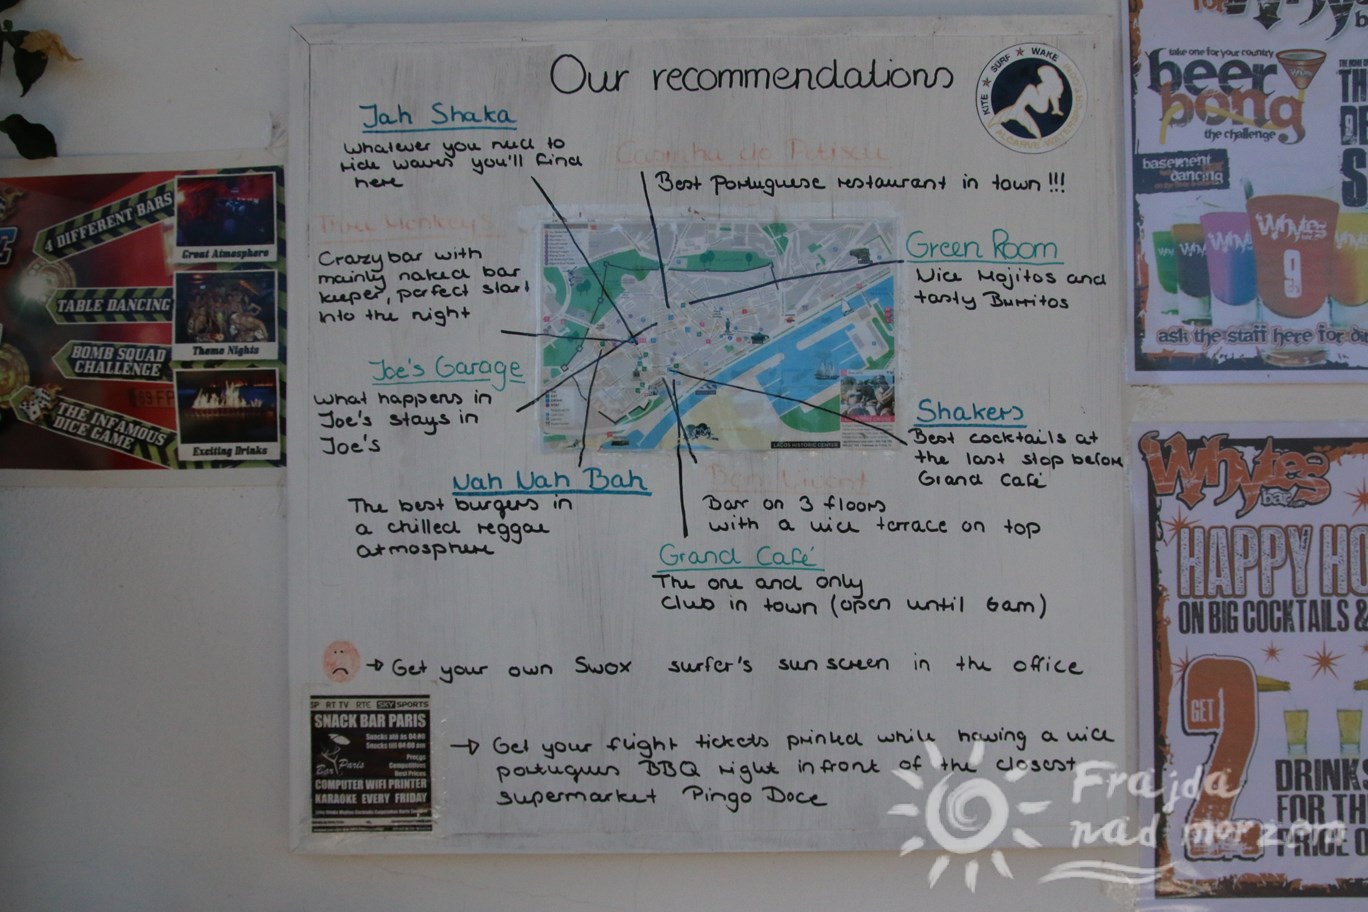 Our recommendations
KITE ★ SURF ★ WAKE
Jah Shaka
Whatever you need to
ride waves you'll find
here
Best Portuguese restaurant in town !!!
Three Monkey's
Crazy bar with
mainly naked bar
keeper, perfect start
into the night
Green Room
Nice Mojitos and
tasty Burritos
Joe's Garage
What happens in
Joe's stays in
Joe's
Shakers
Best cocktails at
the last stop before
Grand Café
Nah Nah Bah
The best burgers in
a chilled reggae
atmosphere
Bon Vivant
Bar on 3 floors
with a nice terrace on top
Grand Café
The one and only
club in town (open until 6am)
→ Get your own Swox surfer's sunscreen in the office
→ Get your flight tickets printed while having a nice
portugues BBQ right infront of the closest
supermarket Pingo Doce
SP RT TV RTE SKY SPORTS
SNACK BAR PARIS
Snacks até as 04:00
Snacks till 04:00 am
Best Prices
Bar Paris
COMPUTER WIFI PRINTER
KARAOKE EVERY FRIDAY
4 DIFFERENT BARS
Great Atmosphere
TABLE DANCING
Theme Nights
BOMB SQUAD
CHALLENGE
THE INFAMOUS
DICE GAME
Exciting Drinks
Whytes
take one for your country
beer
pong
the challenge
basement
dancing
Whytes
9
ask the staff here for
Whytes
bar
HAPPY HO
ON BIG COCKTAILS &
GET
2
DRINKS
FOR THE
PRICE O
Frajda
nad morzem